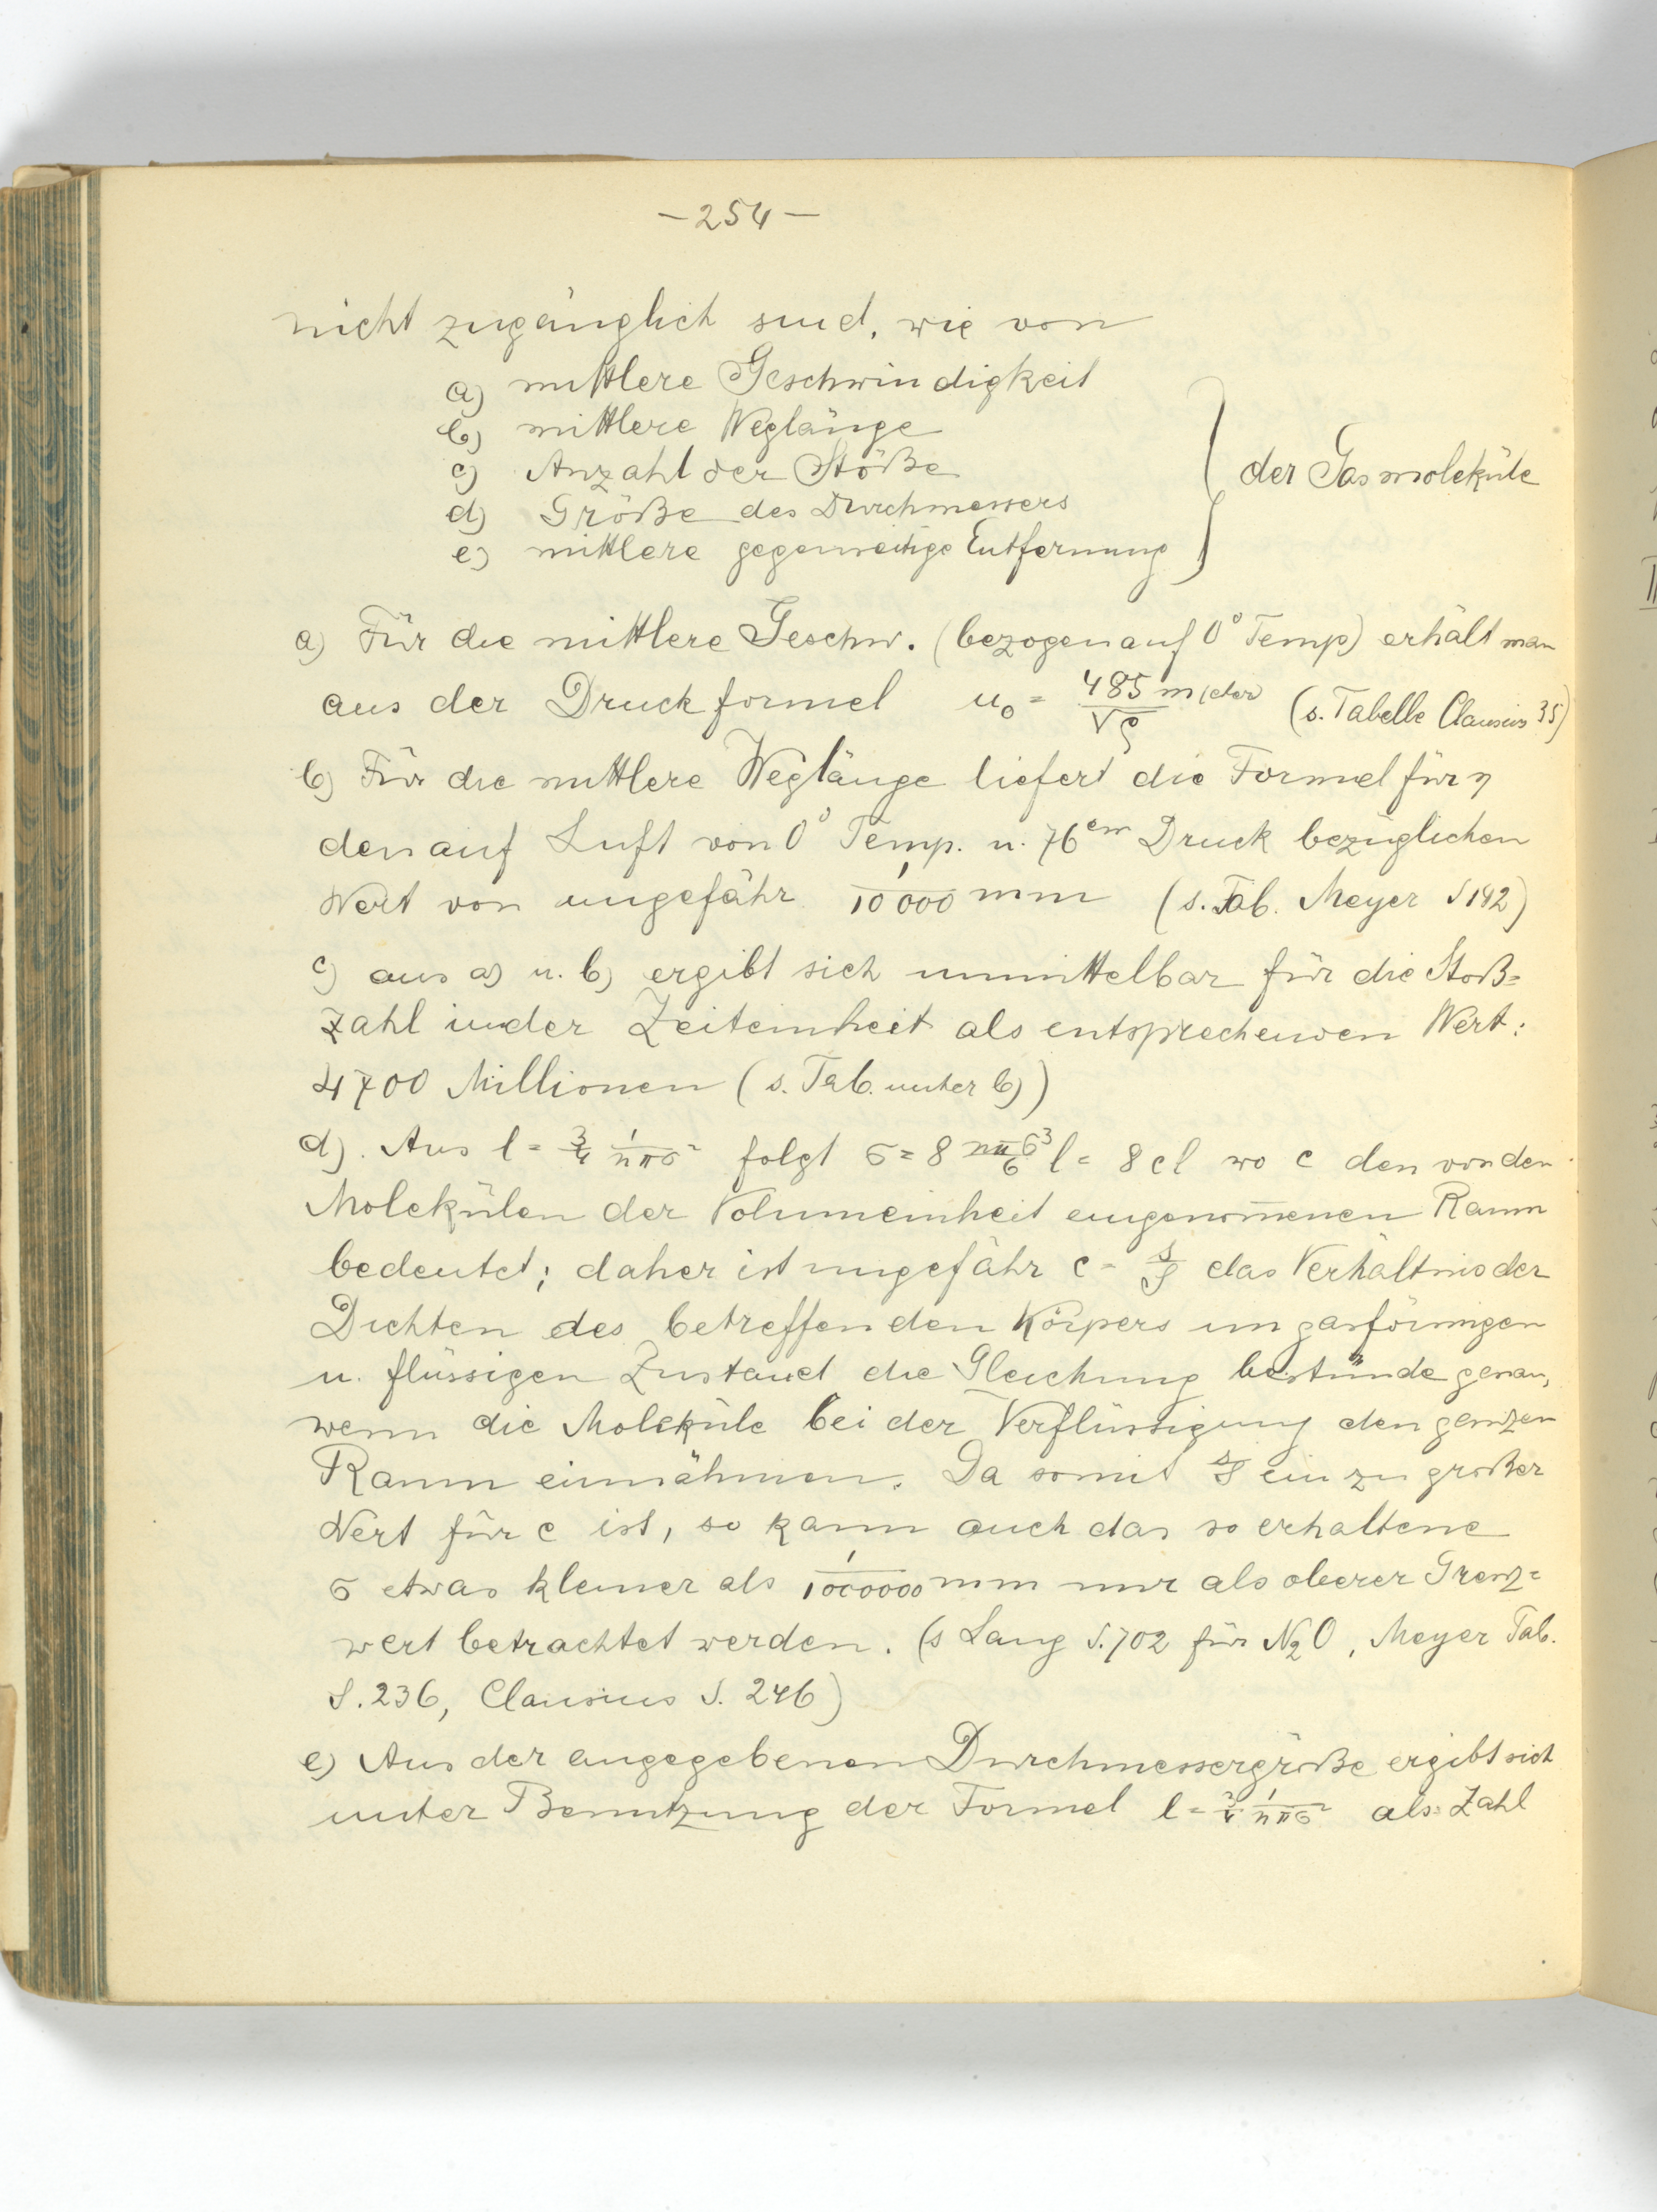 – 254 –
nicht zugänglich sind, wie von
a) mittlere Geschwindigkeit
b) mittlere Weglänge
c) Anzahl der Stöße
d) Größe des Durchmessers
e) mittlere gegenseitige Entfernung
} der Gasmoleküle
a) Für die mittlere Geschw. (bezogen auf 0° Temp) erhält man
aus der Druckformel u₀ = 485 m/√ρ (s. Tabelle Clausius 35)
b) Für die mittlere Weglänge liefert die Formel für η
den auf Luft von 0° Temp. u. 76 cm Druck bezüglichen
Wert von ungefähr 1/10000 mm (s. Tab. Meyer S 142)
c) aus a) u. b) ergibt sich unmittelbar für die Stoß=
zahl in der Zeiteinheit als entsprechenden Wert:
4700 Millionen (s. Tab. unter b))
d). Aus l = 3/4 1/nπσ² folgt σ = 8 nπσ³/6 l = 8 c l wo c den von den
Molekülen der Volumeinheit eingenom̅enen Raum
bedeutet; daher ist ungefähr c = s/S das Verhältnis der
Dichten des betreffenden Körpers im gasförmigen
u. flüssigen Zustand die Gleichung bestünde genau,
wenn die Moleküle bei der Verflüssigung den ganzen
Raum einnähmen. Da somit s/S ein zu großer
Wert für c ist, so kann auch das so erhaltene
σ etwas kleiner als 1/1000000 mm nur als oberer Grenz=
wert betrachtet werden. (s Lang S. 702 für N₂O, Meyer Tab.
S. 236, Clausius S. 246)
e) Aus der angegebenen Durchmessergröße ergibt sich
unter Benutzung der Formel l = 3/4 1/nπσ² als Zahl